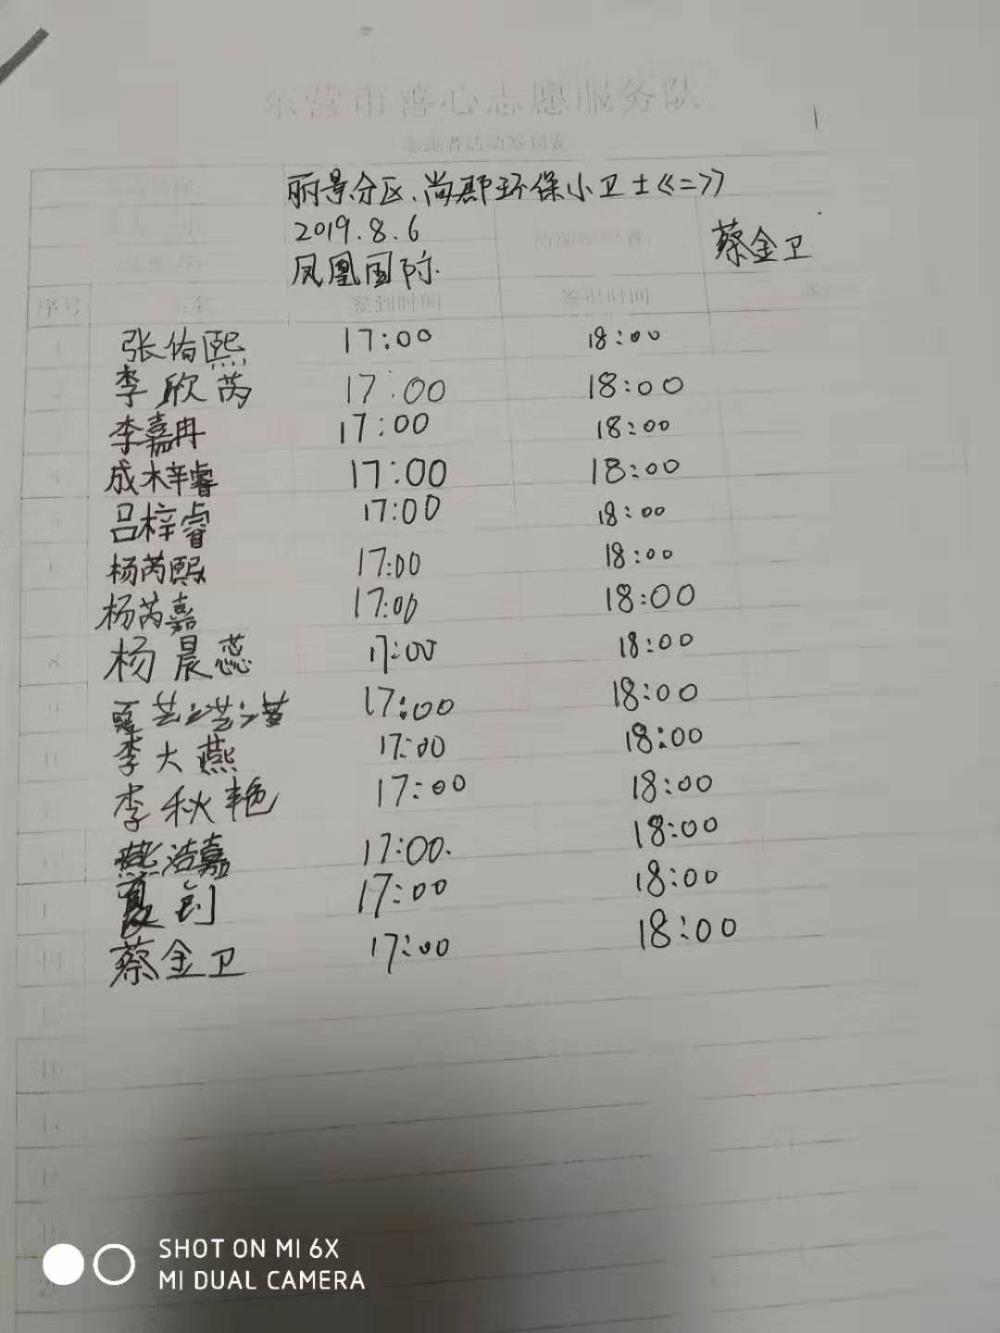 东营市善心志愿服务队
志愿者活动签到表
1
丽景分区.尚郡环保小卫士《二》
2019.8.6
蔡金卫
凤凰国际.
序号 签到时间 签退时间
张佑熙 17:00 18:00
李欣芮 17:00 18:00
李嘉冉 17:00 18:00
成梓睿 17:00 18:00
吕梓睿 17:00 18:00
杨芮熙 17:00 18:00
杨芮嘉 17:00 18:00
杨晨蕊 17:00 18:00
17:00 18:00
李大燕 17:00 18:00
李秋艳 17:00 18:00
浩嘉 17:00. 18:00
夏钊 17:00 18:00
蔡金卫 17:00 18:00
SHOT ON MI 6X
MI DUAL CAMERA